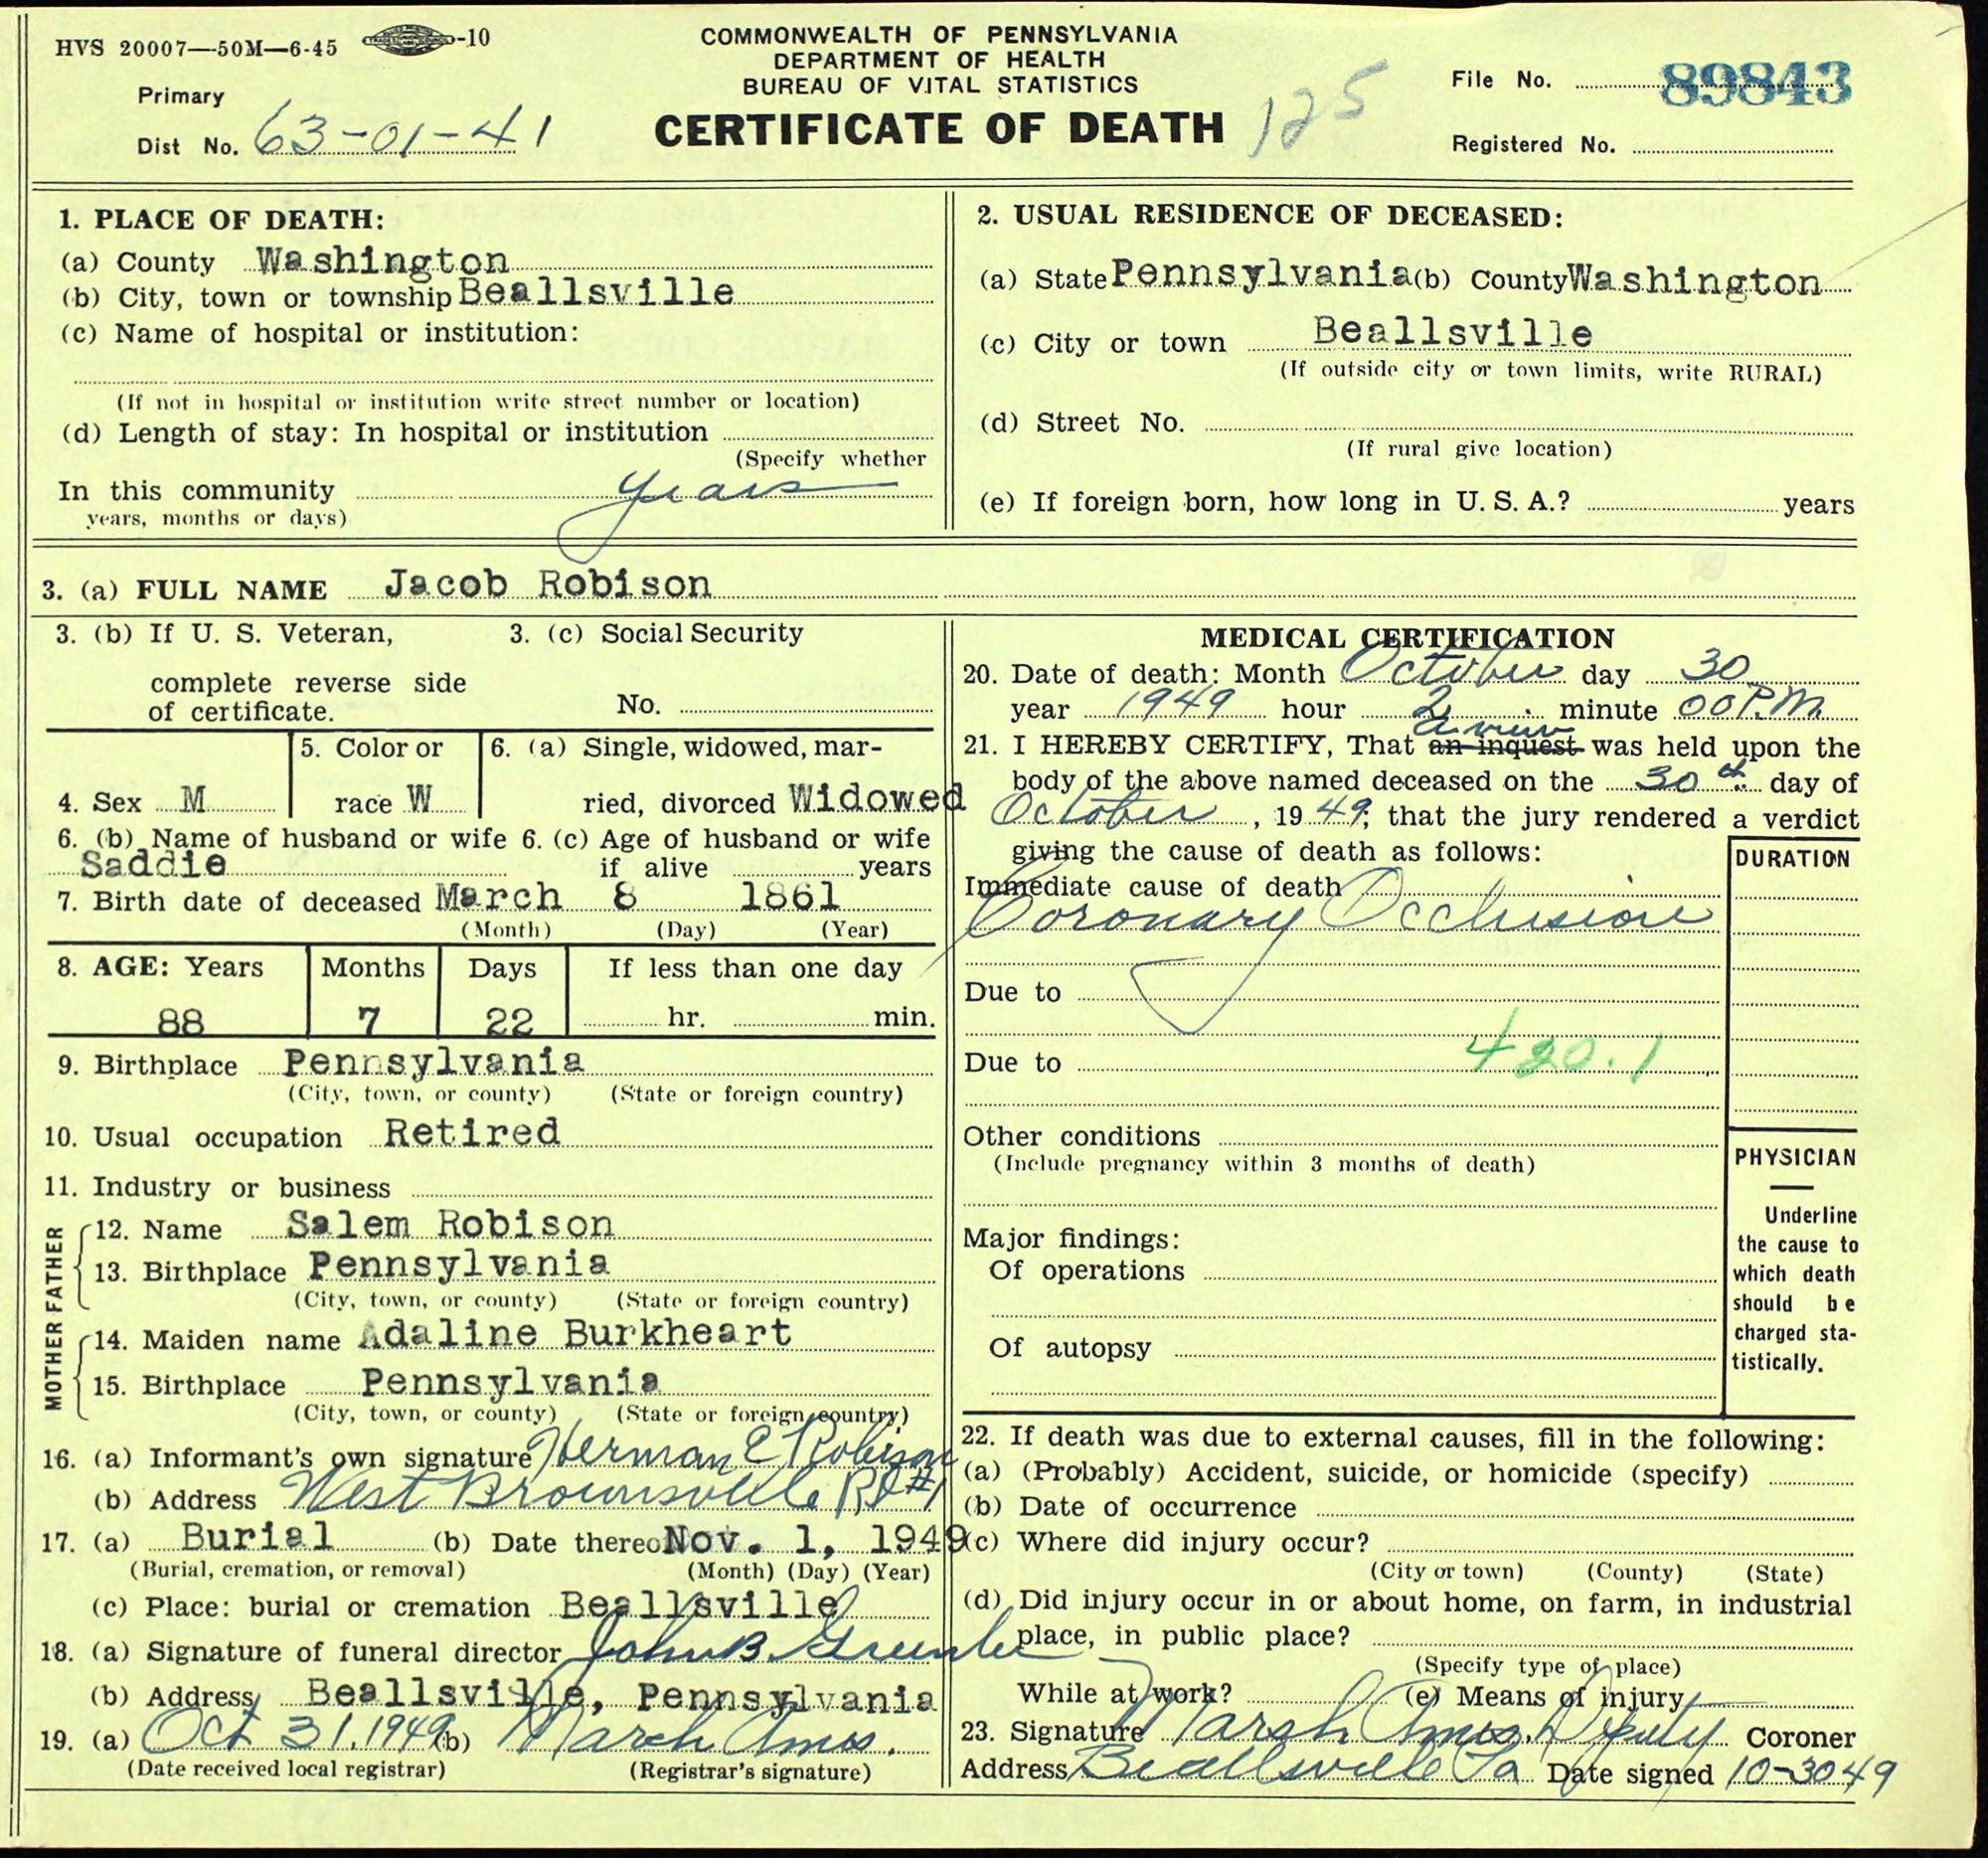 HVS 20007—50M—6-45 -10
COMMONWEALTH OF PENNSYLVANIA
DEPARTMENT OF HEALTH
BUREAU OF VITAL STATISTICS
CERTIFICATE OF DEATH 125
Primary
Dist No. 63-01-41
File No. 89843
Registered No.
1. PLACE OF DEATH:
(a) County Washington
(b) City, town or township Beallsville
(c) Name of hospital or institution:
(If not in hospital or institution write street number or location)
(d) Length of stay: In hospital or institution
(Specify whether
In this community years
years, months or days)
2. USUAL RESIDENCE OF DECEASED:
(a) State Pennsylvania (b) County Washington
(c) City or town Beallsville
(If outside city or town limits, write RURAL)
(d) Street No.
(If rural give location)
(e) If foreign born, how long in U. S. A.? years
3. (a) FULL NAME Jacob Robison
3. (b) If U. S. Veteran,
complete reverse side
of certificate.
3. (c) Social Security
No.
4. Sex M
5. Color or
race W
6. (a) Single, widowed, mar-
ried, divorced Widowed
6. (b) Name of husband or wife
Saddie
6. (c) Age of husband or wife
if alive years
7. Birth date of deceased March 8 1861
(Month) (Day) (Year)
8. AGE: Years Months Days If less than one day
88 7 22 hr. min.
9. Birthplace Pennsylvania
(City, town, or county) (State or foreign country)
10. Usual occupation Retired
11. Industry or business
FATHER
12. Name Salem Robison
13. Birthplace Pennsylvania
(City, town, or county) (State or foreign country)
MOTHER
14. Maiden name Adaline Burkheart
15. Birthplace Pennsylvania
(City, town, or county) (State or foreign country)
16. (a) Informant's own signature Herman E Robison
(b) Address West Brownsville RD #1
17. (a) Burial (b) Date thereo Nov. 1, 1949
(Burial, cremation, or removal) (Month) (Day) (Year)
(c) Place: burial or cremation Beallsville
18. (a) Signature of funeral director John B. Greenlee
(b) Address Beallsville, Pennsylvania
19. (a) Oct 31, 1949 (b) Marsh Amos.
(Date received local registrar) (Registrar's signature)
MEDICAL CERTIFICATION
20. Date of death: Month October day 30
year 1949 hour 2 minute 00 P.M.
a view
21. I HEREBY CERTIFY, That an inquest was held upon the
body of the above named deceased on the 30th day of
October, 1949; that the jury rendered a verdict
giving the cause of death as follows:
DURATION
Immediate cause of death
Coronary Occlusion
Due to
420.1
Due to
Other conditions
(Include pregnancy within 3 months of death)
Major findings:
Of operations
Of autopsy
PHYSICIAN
Underline
the cause to
which death
should be
charged sta-
tistically.
22. If death was due to external causes, fill in the following:
(a) (Probably) Accident, suicide, or homicide (specify)
(b) Date of occurrence
(c) Where did injury occur?
(City or town) (County) (State)
(d) Did injury occur in or about home, on farm, in industrial
place, in public place?
(Specify type of place)
While at work? (e) Means of injury
23. Signature Marsh Amos, Deputy Coroner
Address Beallsville Pa Date signed 10-30 49